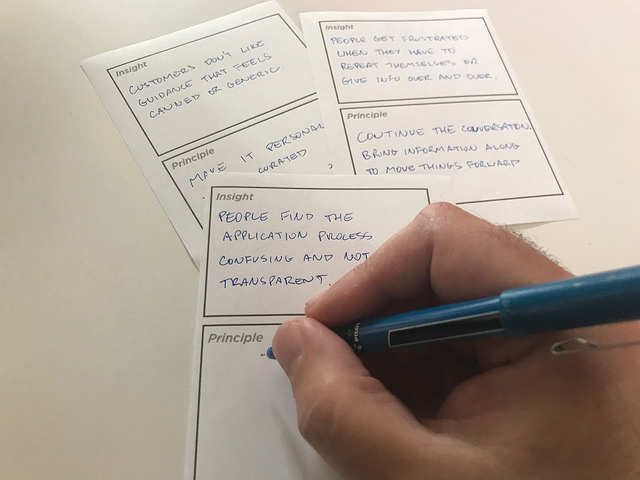 Insight
CUSTOMERS DON'T LIKE
GUIDANCE THAT FEELS
CANNED OR GENERIC.
Principle
MAKE IT PERSONAL
CURATED
Insight
PEOPLE GET FRUSTRATED
WHEN THEY HAVE TO
REPEAT THEMSELVES OR
GIVE INFO OVER AND OVER.
Principle
CONTINUE THE CONVERSATION.
BRING INFORMATION ALONG
TO MOVE THINGS FORWARD
Insight
PEOPLE FIND THE
APPLICATION PROCESS
CONFUSING AND NOT
TRANSPARENT.
Principle
PILOT